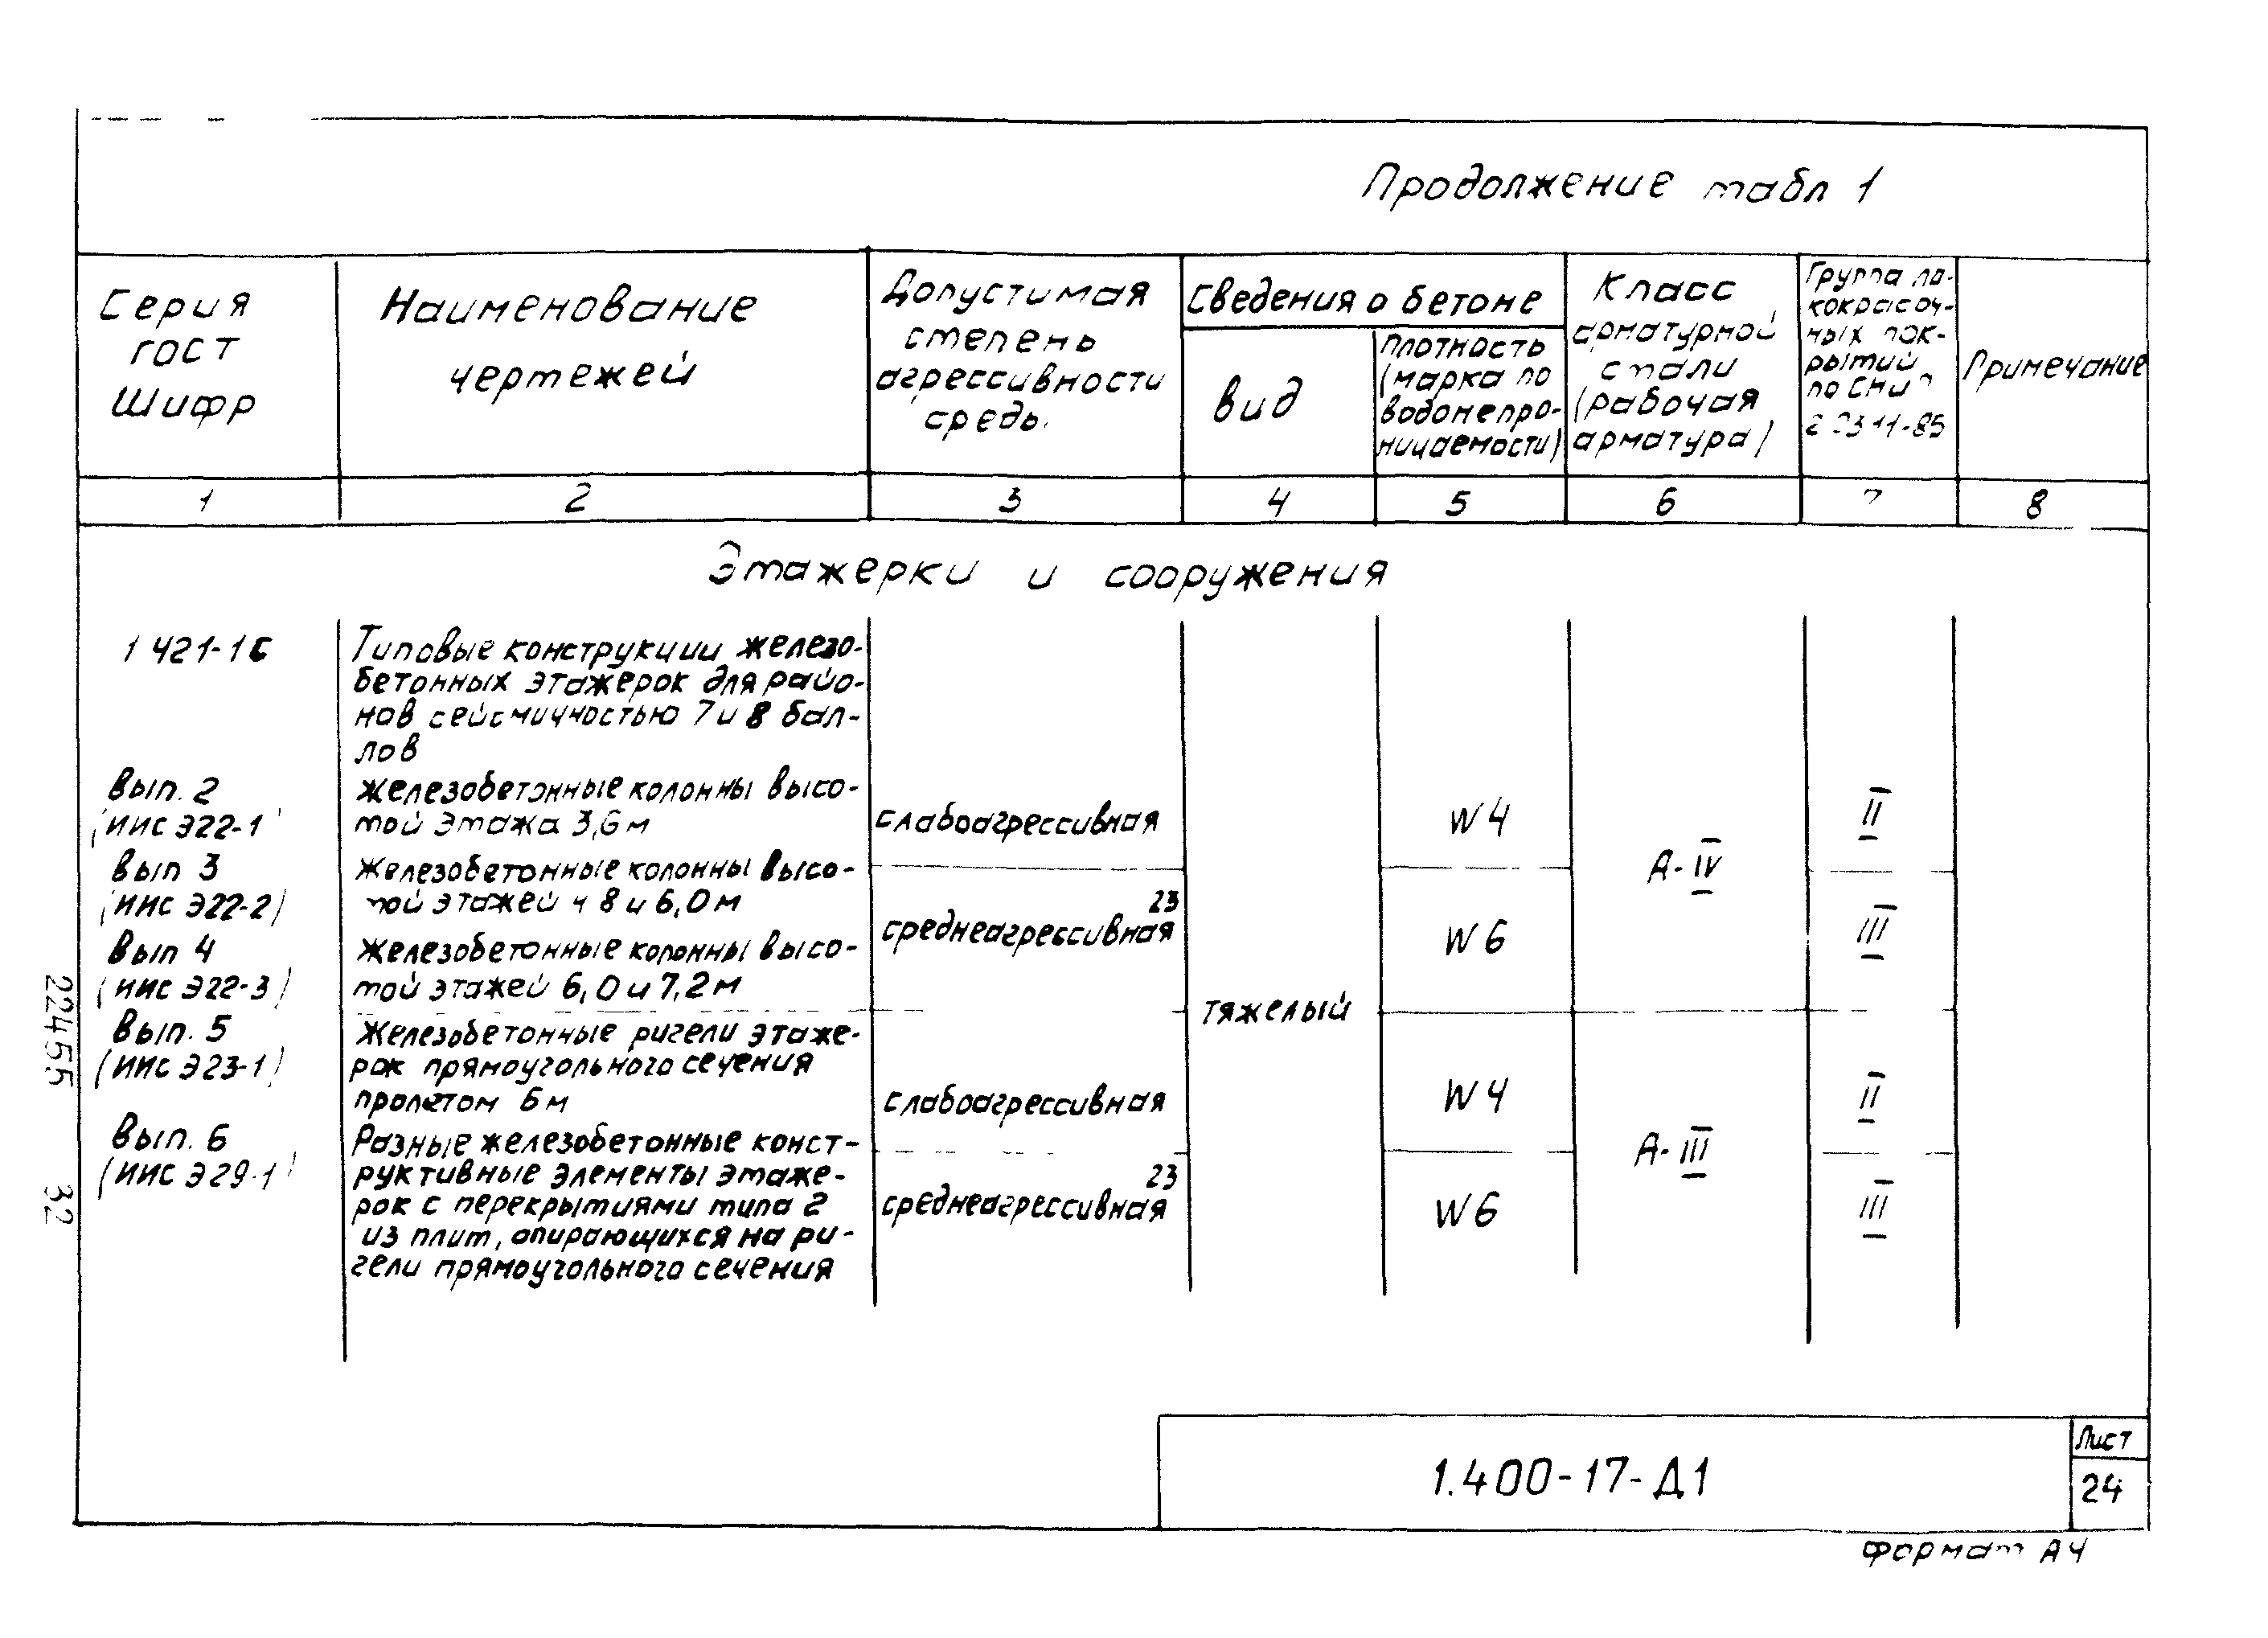 Продолжение табл 1
Серия
ГОСТ
Шифр
Наименование
чертежей
Допустимая
степень
агрессивности
среды
Сведения о бетоне
вид
плотность
(марка по
водонепро-
ницаемости)
Класс
арматурной
стали
(рабочая
арматура)
Группа ла-
кокрасоч-
ных пок-
рытий
по СНиП
2 03 11-85
Примечание
1 2 3 4 5 6 7 8
Этажерки и сооружения
1 421-1С
Типовые конструкции железо-
бетонных этажерок для райо-
нов сейсмичностью 7 и 8 бал-
лов
Вып. 2
(ИИС Э22-1)
Железобетонные колонны высо-
той этажа 3,6 м
Вып 3
(ИИС Э22-2)
Железобетонные колонны высо-
той этажей 4 8 и 6,0 м
Вып 4
(ИИС Э22-3)
Железобетонные колонны высо-
той этажей 6,0 и 7,2 м
слабоагрессивная
W4
II
А-IV
среднеагрессивная 23
W6
III
тяжелый
Вып. 5
(ИИС Э23-1)
Железобетонные ригели этаже-
рок прямоугольного сечения
пролетом 6 м
Вып. 6
(ИИС Э29-1)
Разные железобетонные конст-
руктивные элементы этаже-
рок с перекрытиями типа 2
из плит, опирающихся на ри-
гели прямоугольного сечения
слабоагрессивная
W4
II
А-III
среднеагрессивная 23
W6
III
22455 32
1.400-17-Д1
Лист
24
Формат А4